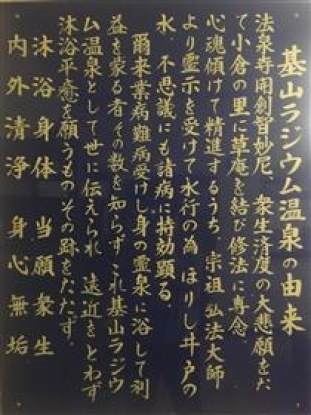 基山ラジウム温泉の由来
法泉寺開創智妙尼、衆生済度の大悲願をた
て小倉の里に草庵を結び修法に専念、
心魂傾けて精進するうち、宗祖弘法大師
より霊示を受けて水行の為ほりし井戸の
水、不思議にも諸病に特効顕る。
爾来業病難病受けし身の霊泉に浴して利
益を蒙る者その数を知らずこれ基山ラジウ
ム温泉として世に伝えられ遠近をとわず
沐浴平癒を願うものその跡をたたず。
沐浴身体 当願衆生
内外清浄 身心無垢